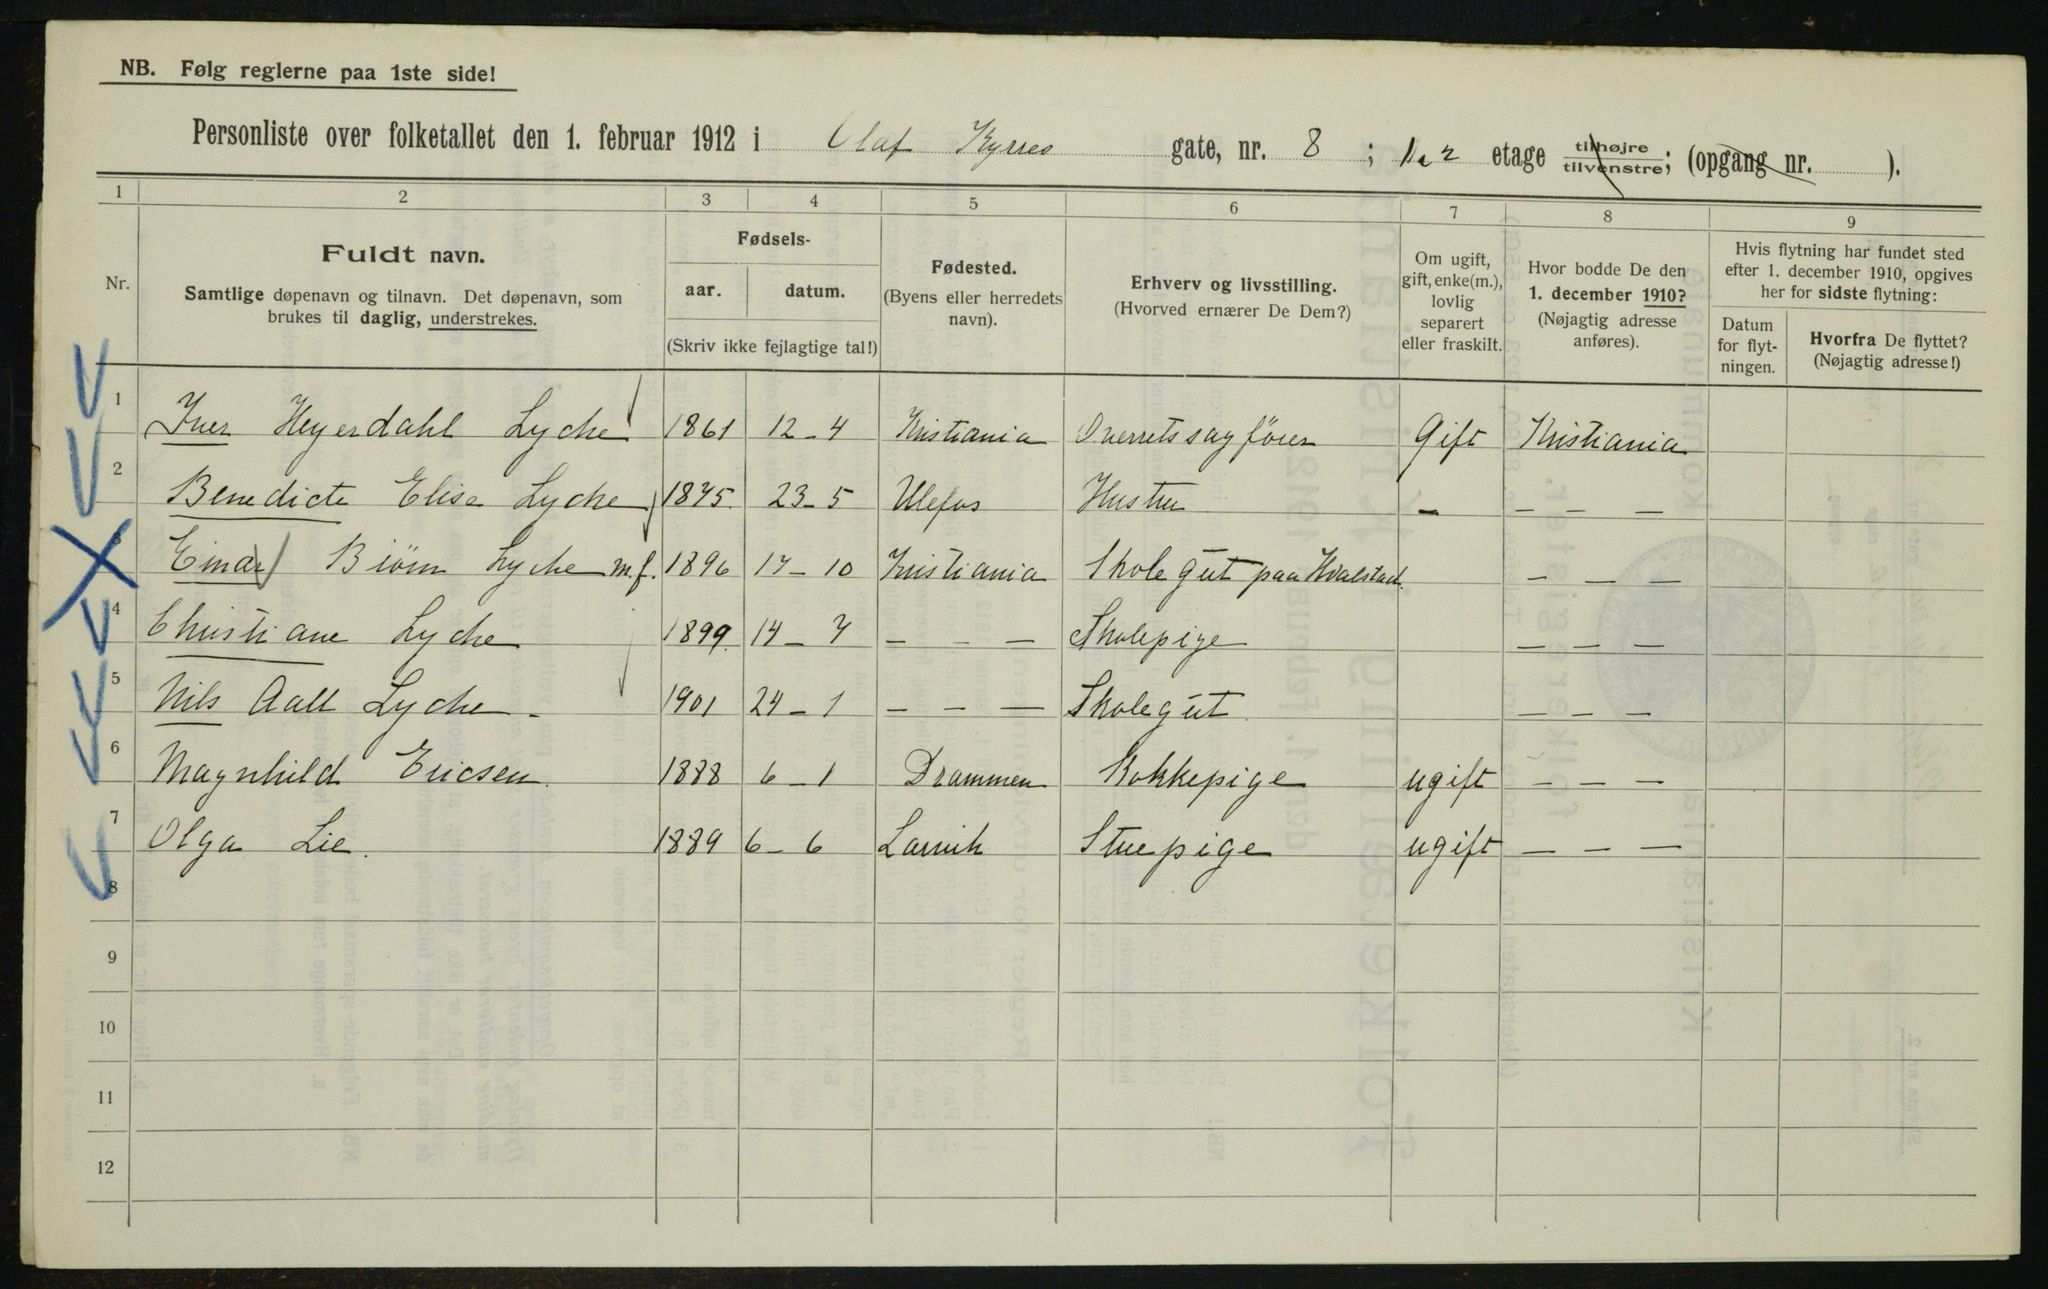 NB. Følg reglerne paa 1ste side!
Personliste over folketallet den 1. februar 1912 i Olaf Kyrres gate, nr. 8 ; 1 & 2 etage tilhøjre tilvenstre; (opgang nr. ).
1 2 3 4 5 6 7 8 9
Nr.
Fuldt navn.
Samtlige døpenavn og tilnavn. Det døpenavn, som
brukes til daglig, understrekes.
Fødsels-
aar. datum.
(Skriv ikke fejlagtige tal!)
Fødested.
(Byens eller herredets
navn).
Erhverv og livsstilling.
(Hvorved ernærer De Dem?)
Om ugift,
gift, enke(m.),
lovlig
separert
eller fraskilt.
Hvor bodde De den
1. december 1910?
(Nøjagtig adresse
anføres).
Hvis flytning har fundet sted
efter 1. december 1910, opgives
her for sidste flytning:
Datum
for flyt-
ningen.
Hvorfra De flyttet?
(Nøjagtig adresse!)
1 Iver Heyerdahl Lyche 1861 12-4 Kristiania Overretssagfører Gift Kristiania
2 Benedicte Elise Lyche 1875. 23-5 Ulefos Hustru — — — —
3 Einar Biørn Lyche m.f. 1896 17-10 Kristiania Skolegut paa Hvalstad. — — —
4 Christiane Lyche 1899. 14-7 — — — Skolepige — — —
5 Nils Aall Lyche - 1901 24-1 — — — Skolegut. — — —
6 Magnhild Ericsen. 1888 6-1 Drammen Kokkepige ugift — — —
7 Olga Lie. 1889 6-6 Larvik Stuepige ugift — — —
8
9
10
11
12